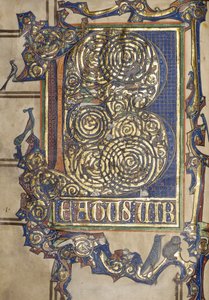 B
EATUS UIR